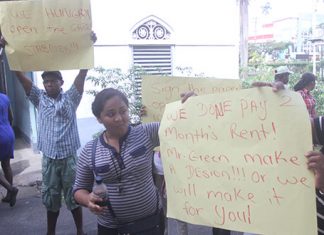 WE HUNGRY
open the
Sign the
We Done PAY 2
Month's Rent!
Mr. Green make
A Design!!! Or we
will make it
for You!